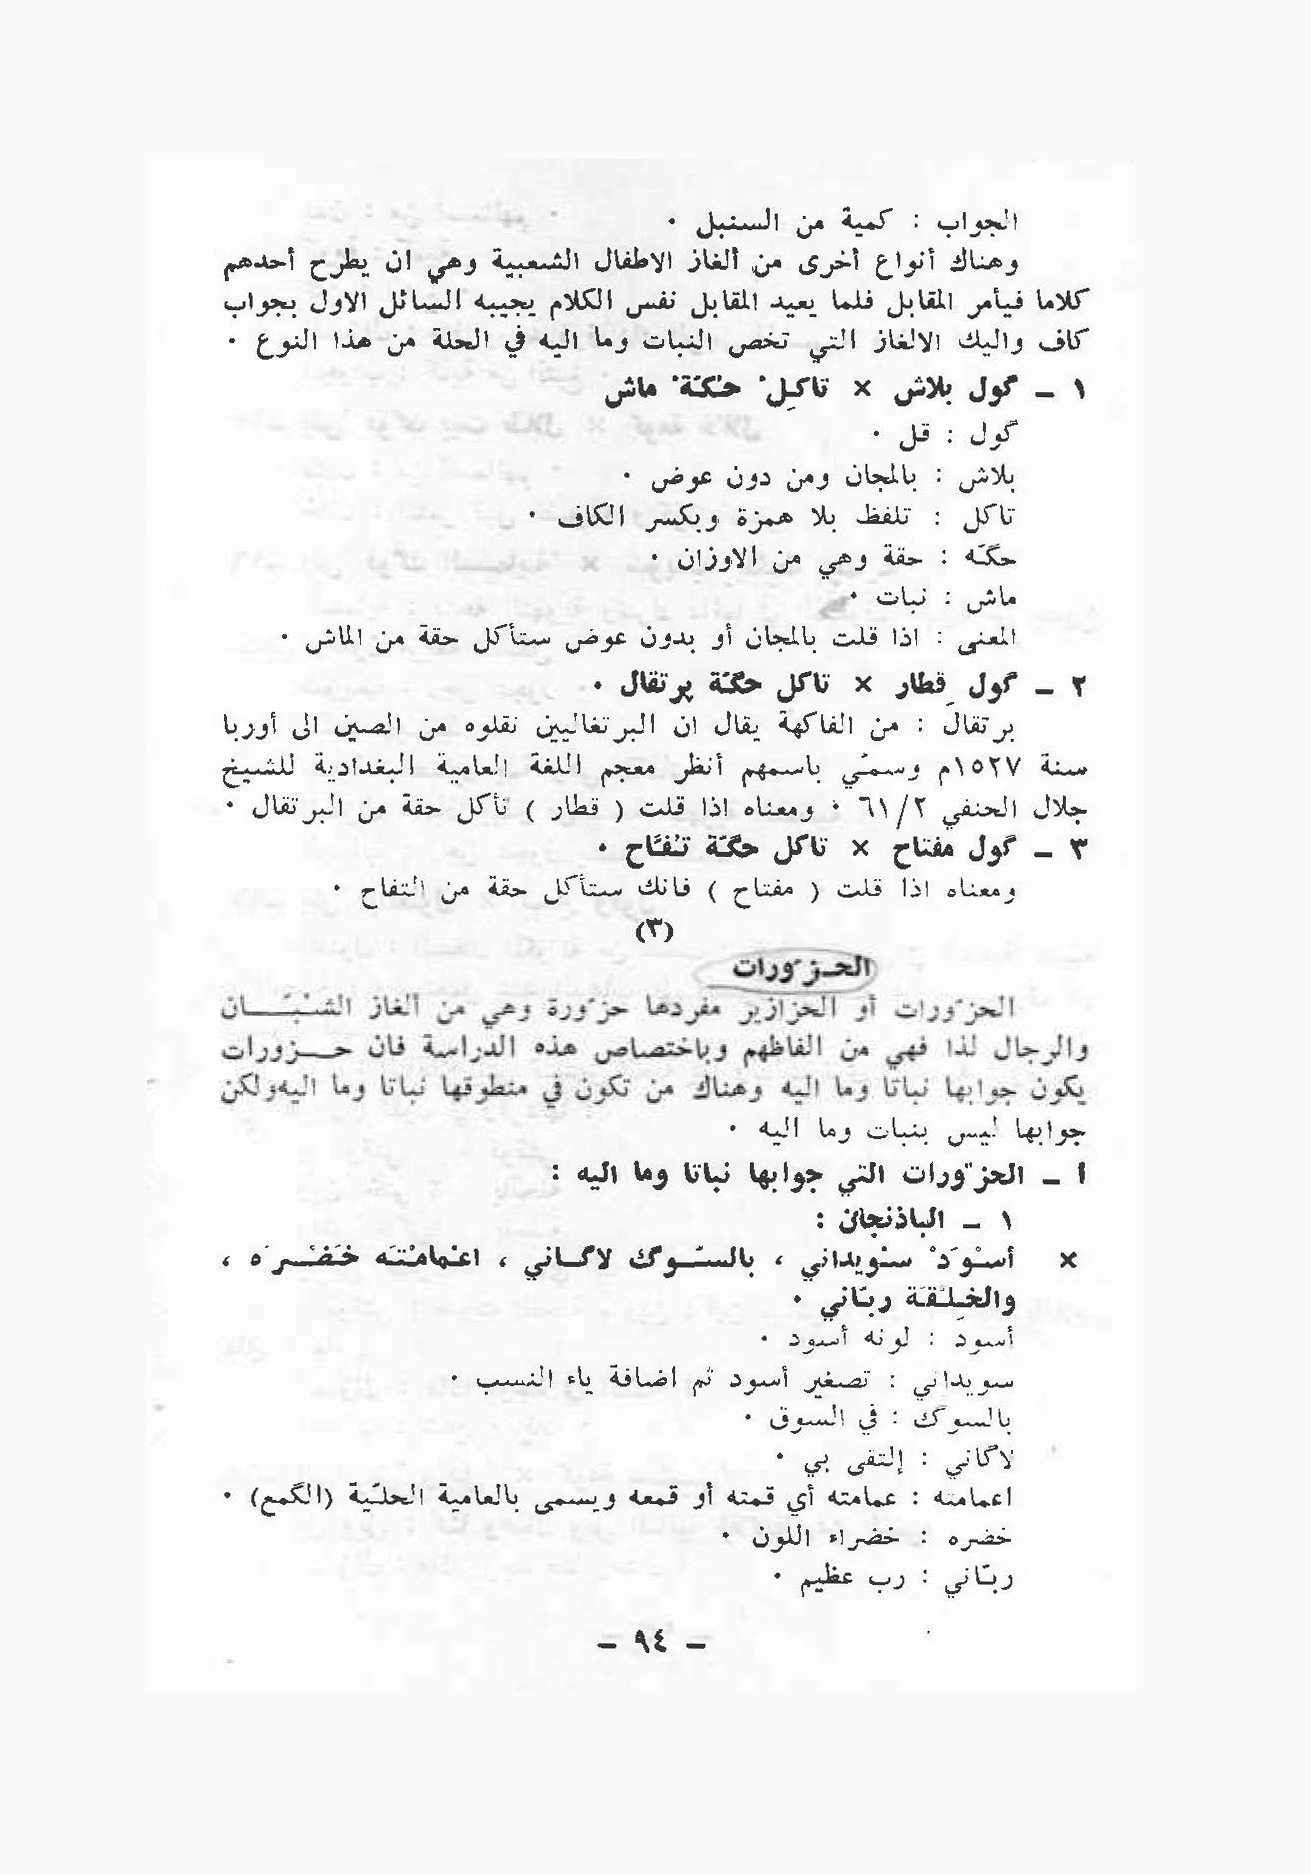 الجواب : كمية من السنبل ٠
وهناك أنواع أخرى من ألغاز الاطفال الشعبية وهي ان يطرح أحدهم
كلاما فيأمر المقابل فلما يعيد المقابل نفس الكلام يجيبه السائل الاول بجواب
كاف واليك الالغاز التي تخص النبات وما اليه في الحلة من هذا النوع ٠
١ ــ گول بلاش × تاكِلْ حُگّةْ ماش
گول : قل ٠
بلاش : بالمجان ومن دون عوض ٠
تاكل : تلفظ بلا همزة وبكسر الكاف ٠
حگّه : حقة وهي من الاوزان ٠
ماش : نبات ٠
المعنى : اذا قلت بالمجان أو بدون عوض ستأكل حقة من الماش ٠
٢ ــ گول قِطار × تاكل حگّة پرتقال ٠
برتقال : من الفاكهة يقال ان البرتغاليين نقلوه من الصين الى أوربا
سنة ١٥٢٧م وسمّي باسمهم أنظر معجم اللغة العامية البغدادية للشيخ
جلال الحنفي ٦١/٢ ٠ ومعناه اذا قلت ( قطار ) تأكل حقة من البرتقال ٠
٣ ــ گول مفتاح × تاكل حگّة تُفّاح ٠
ومعناه اذا قلت ( مفتاح ) فانك ستأكل حقة من التفاح ٠
(٣)
الحـزّورات
الحزّورات أو الحزازير مفردها حزّورة وهي من ألغاز الشبّـــان
والرجال لذا فهي من الفاظهم وباختصاص هذه الدراسة فان حـــزورات
يكون جوابها نباتا وما اليه وهناك من تكون في منطوقها نباتا وما اليه ولكن
جوابها ليس بنبات وما اليه ٠
أ ــ الحزّورات التي جوابها نباتا وما اليه :
١ ــ الباذنجان :
× أسْوَدْ سْويداني ، بالسّوگ لاگـاني ، اعْمامْتَه خَضْـرَه ،
والخِلْقَة ربّاني ٠
أسود : لونه أسود ٠
سويداني : تصغير أسود ثم اضافة ياء النسب ٠
بالسوگ : في السوق ٠
لاگاني : إلتقى بي ٠
اعمامته : عمامته أي قمته أو قمعه ويسمى بالعامية الحلّية (الگمع) ٠
خضره : خضراء اللون ٠
ربّاني : رب عظيم ٠
ــ ٩٤ ــ